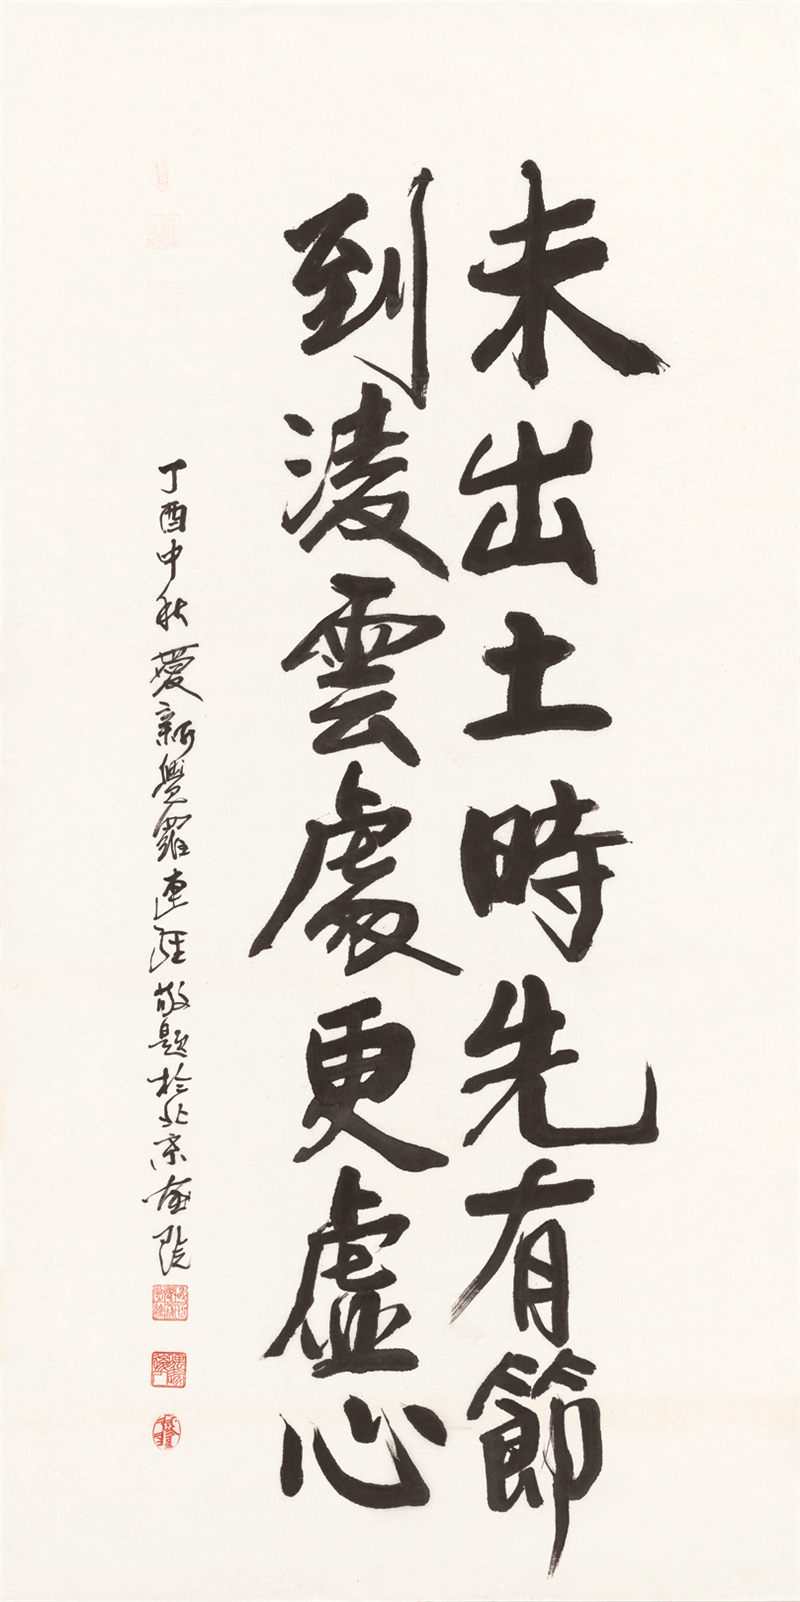 未出土時先有節
到淩雲處更虛心
丁酉中秋愛新覺羅連經敬題於北京畫院